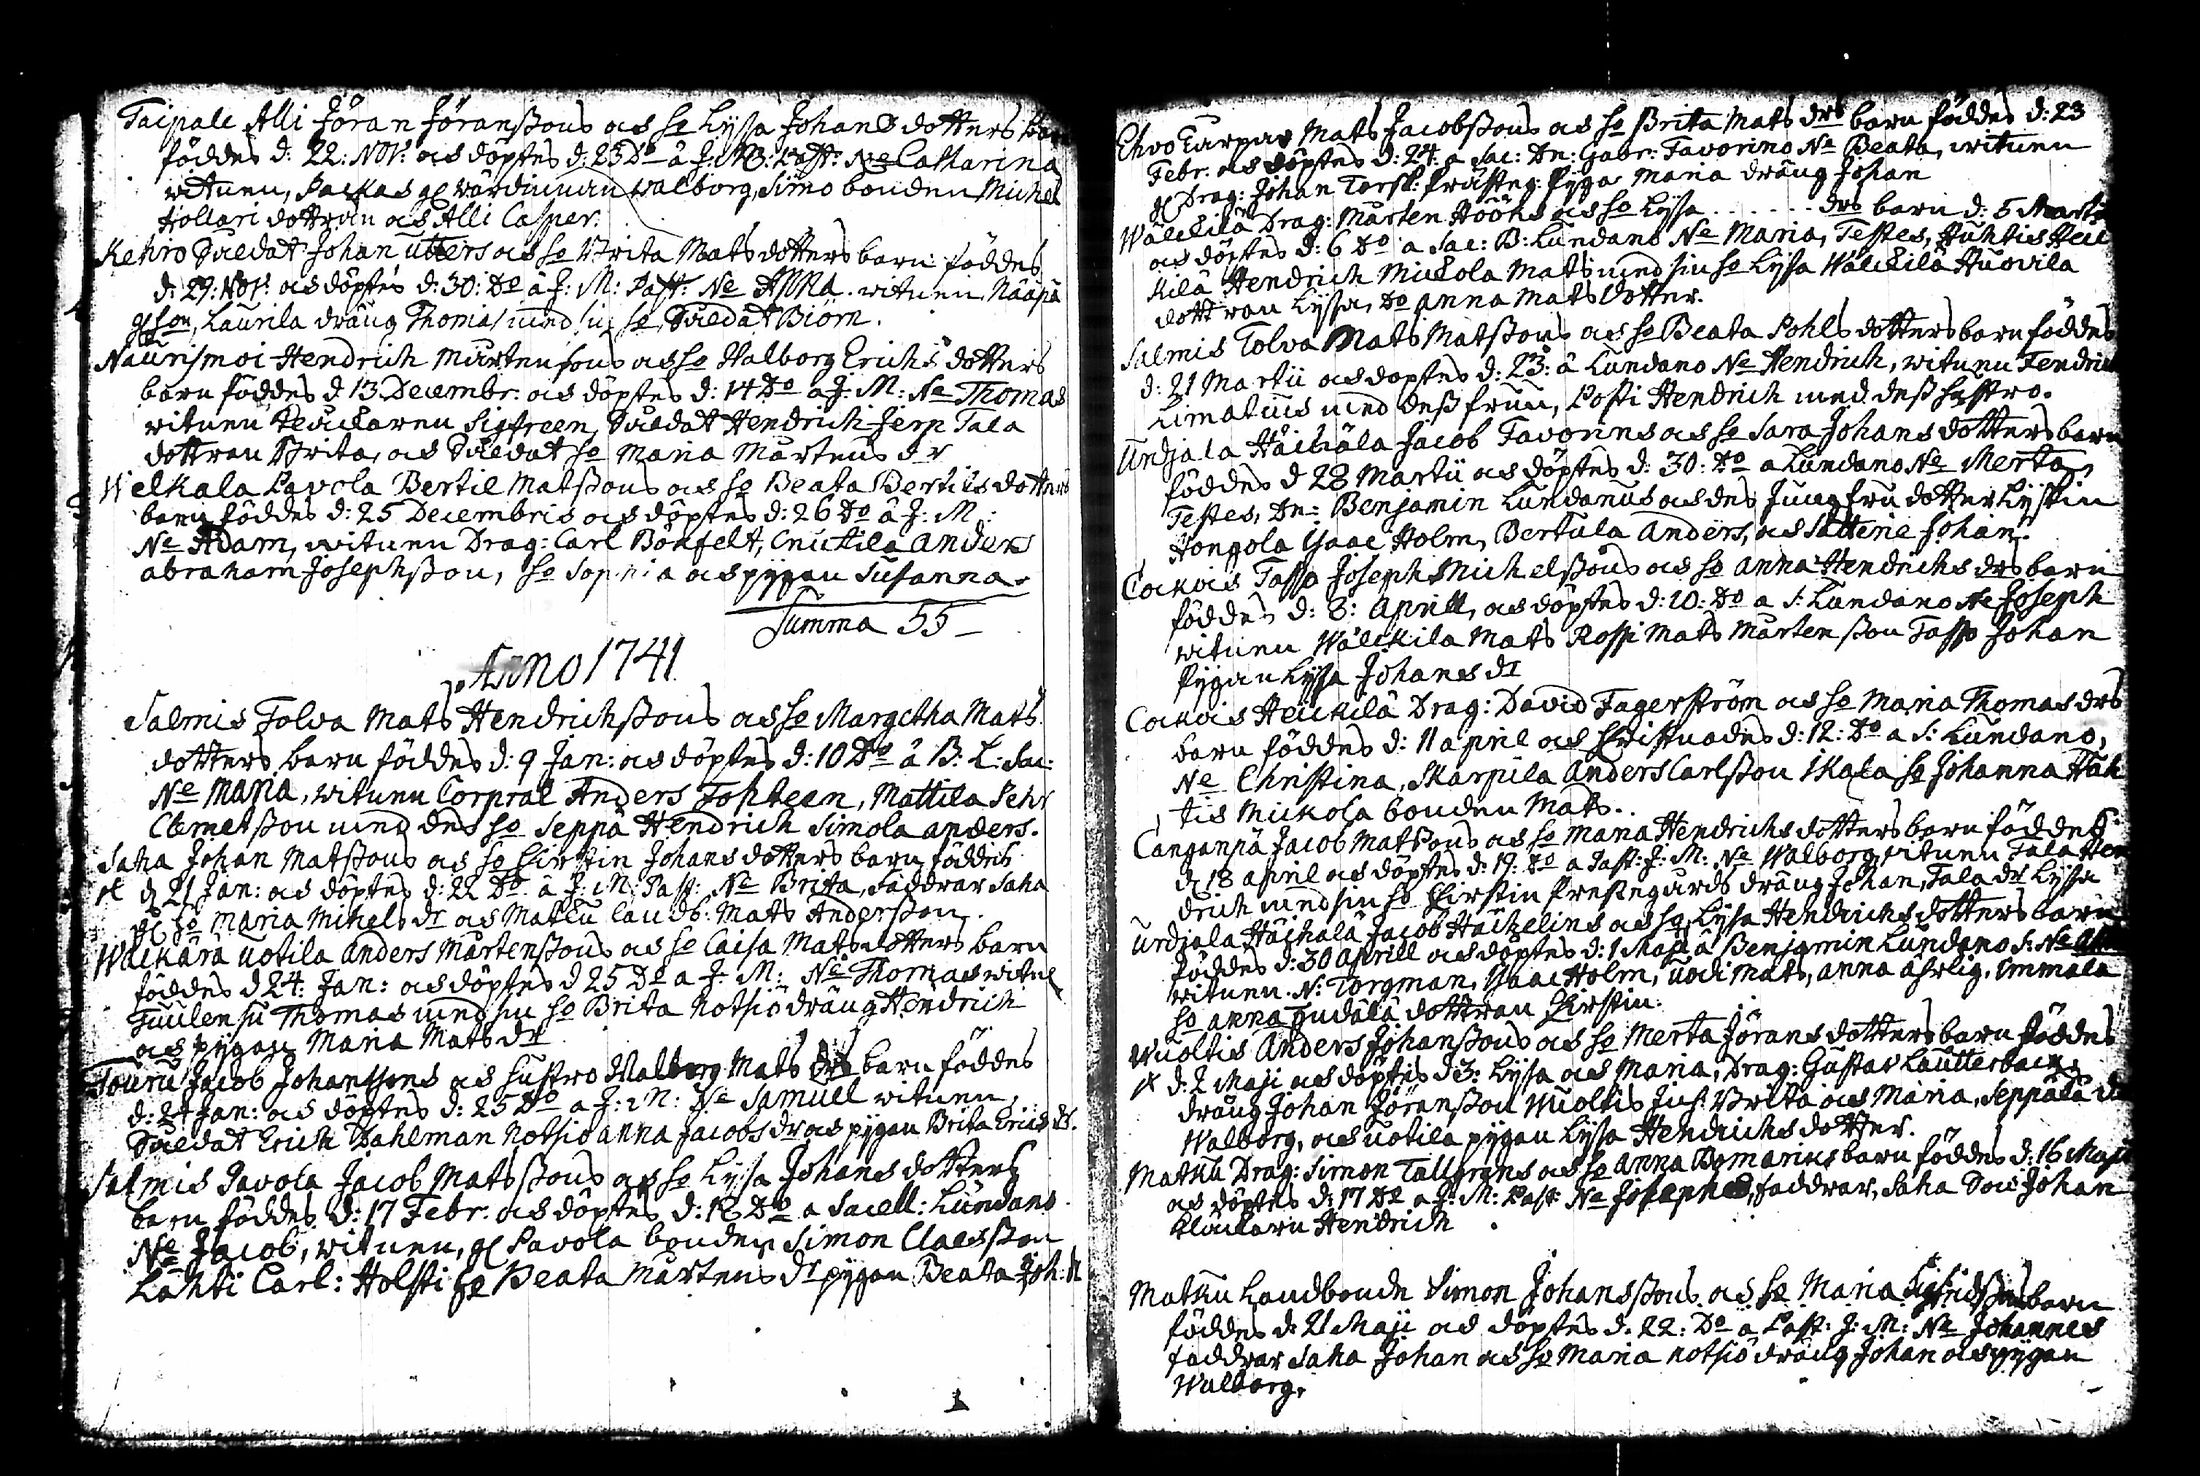 Taipale Alli Jöran Jöranßons och ho Lysa Johans dotters barn
föddes d: 22: Nov: och döptes d: 23 Do â J: M: Past: Ne Catharina
witnen, Packas gl wärdinnan Walborg, Simo bonden Michel
Hollari dottran och Alli Casper.
Kehro Soldat Johan Utters och ho Brita Mats dotters barn föddes
d: 29: Nov: och döptes d: 30: Do â J: M: Past: Ne Anna. witnen Nääpä
gl son, Laurila dräng Thomas med sin ho, Soldat Biörn.
Naurismoi Hendrich Mårtensons och ho Walborg Erichs dotters
barn föddes d 13 Decembr: och döptes d: 14 Do a J: M: Ne Thomas
witnen Sigfreen, Soldat Hendrich Jerp Tala
dottran Brita, och Soldat ho Maria Mårtens dr
Welkala Pavola Bertil Matßons och ho Beata Bertils dotters
barn föddes d: 25 Decembris och döptes d: 26 Do â J: M:
Ne Adam, witnen Drag: Carl Bonfelt, Cnutila Anders
Abraham Josephßon, ho Sophia och pygan Susanna.
Summa 55
Anno 1741
Salmis Tolva Mats Hendrichßons och ho Margetha Mats
dotters barn föddes d: 9 Jan: och döptes d: 10 Do â B: L: Sac:
Ne Maria, witnen Corpral Anders Toshteen, Mattila Sehr
Clemetßon med des ho Seppä Hendrich Simola Anders.
Saha Johan Matßons och ho Chirstin Johans dotters barn föddes
d 21 Jan: och döptes d: 22 Do â J: M: Past: Ne Brita, Faddrar Saha
gl ho Maria Mikels dr och Matku landb: Mats Anderßon.
Walkära Uotila Anders Mårtenßons och ho Caisa Mats dotters barn
föddes d 24 Jan: och döptes d 25 Do a J: M: Ne Thomas witnen
Thomas med sin ho Brita Notsiö dräng Hendrich
och pygan Maria Mats dr
Touru Jacob Johanssons och hustro Walborg Mats drs barn föddes
d: 24 Jan: och döptes d: 25 Do a J: M: Ne Samuell witnen,
Soldat Erich Dahlman Notsiö Anna Jacobs dr och pygan Brita Erics dr.
Salmis Pavola Jacob Matsßons och ho Lysa Johans dotters
barn föddes d: 17 Febr: och döptes d: 18 Do a Sacell: Lundano
Ne Jacob, witnen, gl Pavola bonden Simon Claesßon
Lahti Carl: Holsti ho Beata Mårtens dr pygan Beata Joh: dr
Ehro Turpas Mats Jacobßons och ho Brita Mats drs barn föddes d: 23
Febr: och döptes d: 24: a Sac: Dn: Gabr: Favorino Ne Beata, witnen
gl Drag: Johan Torsk: Prästeg: pyga Maria dräng Johan
Wälckilä Drag: Mårten Hööks och ho Lysa . . . . . . drs barn d: 5 Martii
och döptes d: 6 Do a Sac: B: Lundano Ne Maria, Testes, Huhtis Heic
kilä Hendrich Mickola Mats med sin ho Lysa Wälckilä Huovila
dottran Lysa, Do Anna Mats dotter.
Salmis Tolva Mats Matßons och ho Beata Pohls dotters barn föddes
d: 21 Martii och döptes d: 23: â Lundano Ne Hendrich, witnen Fendrich
Limatius med deß frun, Posti Hendrich med deß hustro.
Urdjala Häihälä Jacob Favorins och ho Sara Johans dotters barn
föddes d 28 Martii och döptes d: 30: Do a Lundano Ne Merta,
Testes, Dn: Benjamin Lundanus och des Jungfru dotter Lyskin
Hongola Ysaac Holm, Bertula Anders, och Johan.
Cackois Tasso Joseph Michelßons och ho Anna Hendrichs drs barn
föddes d: 8: Aprill, och döptes d: 10: Do a S: Lundano Ne Joseph
witnen Wälckila Mats Rossi Mats Mårtenßon Tasso Johan
Pygan Lysa Johans dr
Cackois Heickilä Drag: David Fagerström och ho Maria Thomas drs
barn föddes d: 11 april och Christnades d: 12: Do a S: Lundano,
Ne Christina, Skarpila Anders Carlßon Ikala ho Johanna Huh
tis Mickola bonden Mats.
Canganpä Jacob Matßons och ho Maria Hendrichs dotters barn föddes
d 18 april och döptes d: 19: Do a Past: J: M: Ne Walborg witnen Tala Hen
drich med sin ho Chirstin Prestegårds dräng Johan, Tala dr Lysa
Urdjala Häihälä Jacob Häihelins och ho Lysa Hendrichs dotters barn
föddes d: 30 aprill och döptes d: 1 Maji â Benjamin Lundano S: Ne
witnen N: Torgman, Ysaac Holm, Uodi Mats, Anna ährlig. Emmala
ho Anna dottran Chirstin.
Wuoltis Anders Johanßons och ho Merta Jörans dotters barn föddes
d: 2 Maji och döptes d 3: Lysa och Maria, Drag: Gustav Lautterback,
dräng Johan Jöranßon Wuoltis Brita och Maria, Seppälä
Walborg, och Uotila pygan Lysa Hendrichs dotter.
Matku Drag: Simon Tallgrens och ho Anna Bomarius barn föddes d: 16 Maji
och döptes d: 17 Do a J: M: Past: Ne Josephus, faddrar, Saha Johan
Klockaren Hendrich
Matku Landbonde Simon Johansßons och ho Maria Sigfrids barn
föddes d: 21 Maji och döptes d: 22: Do â Past: J: M: Ne Johannes
faddrar Saha Johan och ho Maria Notsiö dräng Johan och pygan
Walborg.